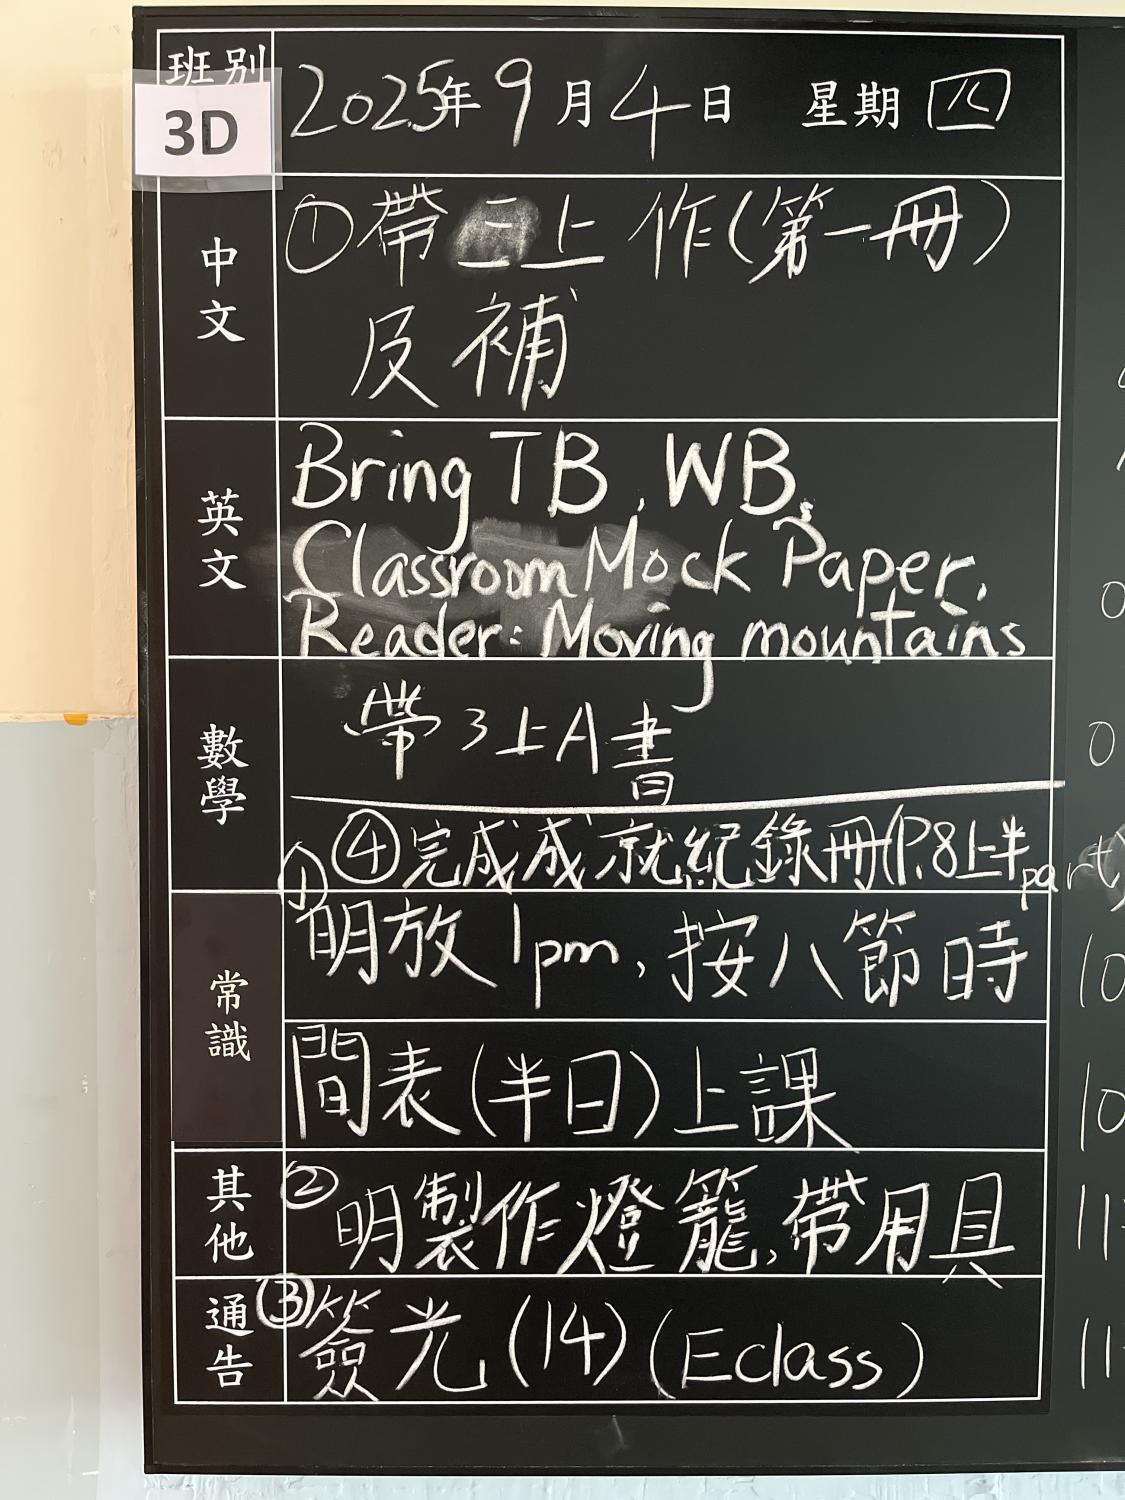 班別 3D 2025年9月4日 星期四
中文
①帶三上 作(第一冊)
及補
英文
Bring TB, WBs,
Classroom Mock Paper,
Reader: Moving mountains
數學
帶3上A書
④完成成就紀錄冊(P.8上半part)
常識
①明放1pm, 按八節時
間表(半日)上課
其他
②明製作燈籠,帶用具
通告
③簽光(14)(Eclass)
0
0
10
10
11
11